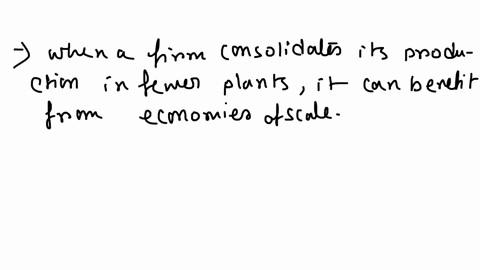 → when a firm consolidates its produ-
ction in fewer plants, it can benefit
from economies of scale.